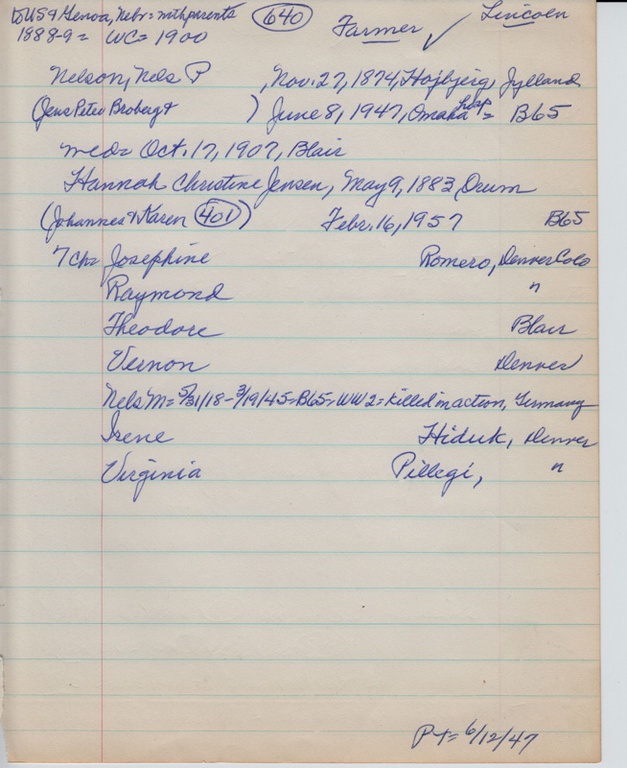 to USA & Genoa, Nebr = with parents (640) Farmer ✓ Lincoln
1888-9 = WC = 1900
Nelson, Nels P , Nov. 27, 1874, Hojbjerg, Jylland
(Jens Peter Broberg & ) June 8, 1947, Omaha hosp = B65
med = Oct. 17, 1907, Blair
Hannah Christine Jensen, May 9, 1883, Drum
(Johannes & Karen (401)) Febr. 16, 1957 B65
7 ch = Josephine Romero, Denver Colo
Raymond "
Theodore Blair
Vernon Denver
Nels M = 5/31/18 - 3/19/45 = B65 = WW2 = killed in action, Germany
Irene Hiduk, Denver
Virginia Pillegi, "
PT = 6/12/47